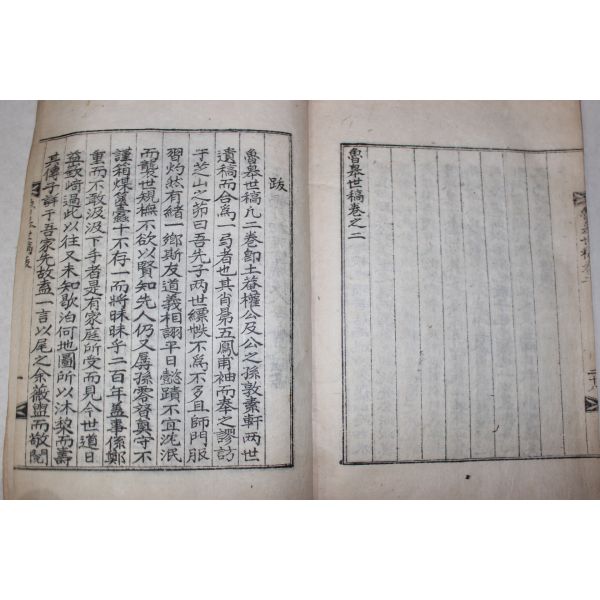 魯皐世稿卷之二
跋
魯皐世稿凡二卷卽土菴權公及公之孫敦素軒兩世
遺稿而合爲一弓者也其肖昻五鳳甫袖而奉之謬訪
于芝山之茆曰吾先子兩世縹帙不爲不多且師門服
習灼然有緖一鄕斯友道義相詡平日懿蹟不宜沈泯
而襲世規橅不欲以賢知先人仍又孱孫零替莫守不
謹箱煤蠹十不存一而將昧昧乎二百年盖事係鄭
重而不敢汲汲下手者是有家庭所受而見今世道日
益嶔崎過此以往又未知歇泊何地圖所以沐梨而壽
其傳子詳于吾家先故盍一言以尾之余薇盥而敬閱